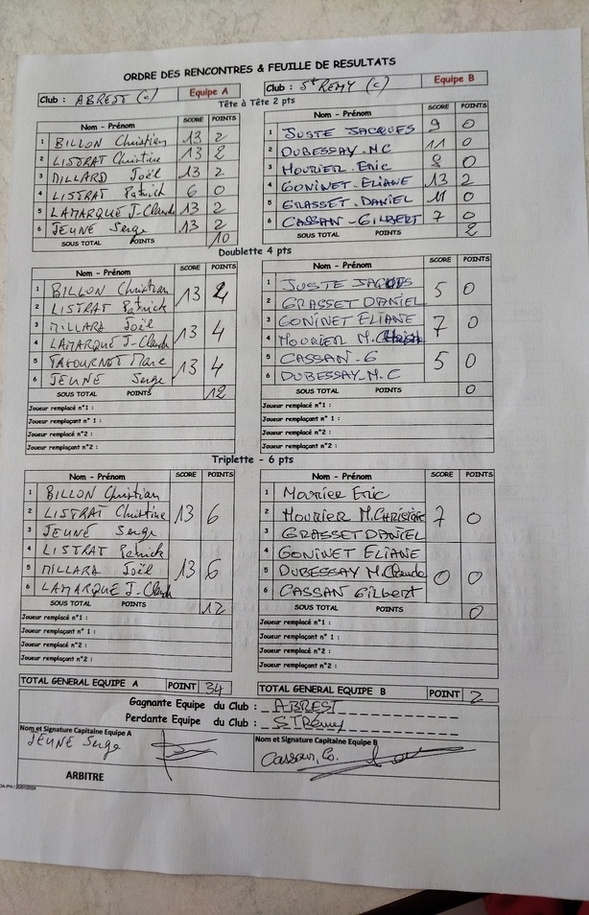 ORDRE DES RENCONTRES & FEUILLE DE RESULTATS
Club : ABREST (c) Equipe A Club : St REMY (c) Equipe B
Tête à Tête 2 pts
Nom - Prénom SCORE POINTS Nom - Prénom SCORE POINTS
1 BILLON Christian 13 2 1 JUSTE JACQUES 9 0
2 LISTRAT Christine 13 2 2 DUBESSAY.MC 11 0
3 MILLARD Joël 13 2 3 MOURIER.Eric 8 0
4 LISTRAT Patrick 6 0 4 GONINET.ELIANE 13 2
5 LAMARQUE J-Claude 13 2 5 GRASSET.DANIEL 11 0
6 JEUNE Serge 13 2 6 CASSAN-GILBERT 7 0
SOUS TOTAL POINTS 10 SOUS TOTAL POINTS 2
Doublette 4 pts
Nom - Prénom SCORE POINTS Nom - Prénom SCORE POINTS
1 BILLON Christian 13 4 1 JUSTE JACQUES 5 0
2 LISTRAT Patrick 2 GRASSET DANIEL
3 MILLARD Joël 13 4 3 GONINET ELIANE 7 0
4 LAMARQUE J-Claude 4 MOURIER M.
5 TAFOURNET Marc 13 4 5 CASSAN-G 5 0
6 JEUNE Serge 6 DUBESSAY.M.C
SOUS TOTAL POINTS 12 SOUS TOTAL POINTS 0
Joueur remplacé n°1 : Joueur remplacé n°1 :
Joueur remplaçant n° 1 : Joueur remplaçant n° 1 :
Joueur remplacé n°2 : Joueur remplacé n°2 :
Joueur remplaçant n°2 : Joueur remplaçant n°2 :
Triplette - 6 pts
Nom - Prénom SCORE POINTS Nom - Prénom SCORE POINTS
1 BILLON Christian 13 6 1 Mourier Eric 7 0
2 LISTRAT Christine 2 MOURIER M.CHRISTINE
3 JEUNE Serge 3 GRASSET DANIEL
4 LISTRAT Patrick 13 6 4 GONINET ELIANE 0 0
5 MILLARD Joël 5 DUBESSAY M.Claude
6 LAMARQUE J-Claude 6 CASSAN Gilbert
SOUS TOTAL POINTS 12 SOUS TOTAL POINTS 0
Joueur remplacé n°1 : Joueur remplacé n°1 :
Joueur remplaçant n°1 : Joueur remplaçant n°1 :
Joueur remplacé n°2 : Joueur remplacé n°2 :
Joueur remplaçant n°2 : Joueur remplaçant n°2 :
TOTAL GENERAL EQUIPE A POINT 34 TOTAL GENERAL EQUIPE B POINT 2
Gagnante Equipe du Club : ABREST
Perdante Equipe du Club : ST Rémy
Nom et Signature Capitaine Equipe A Nom et Signature Capitaine Equipe B
JEUNE Serge Cassan.G.
ARBITRE